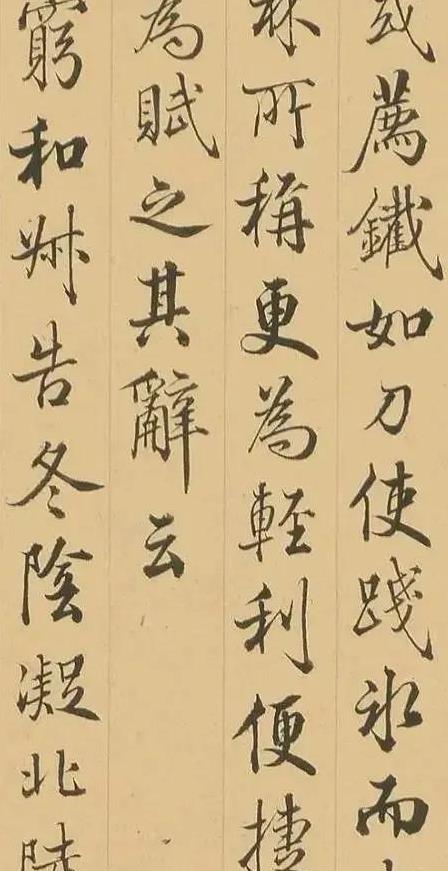 或薦鐵如刀使踐冰而
所稱更為輕利便捷
為賦之其辭云
窮和叔告冬陰凝北陸